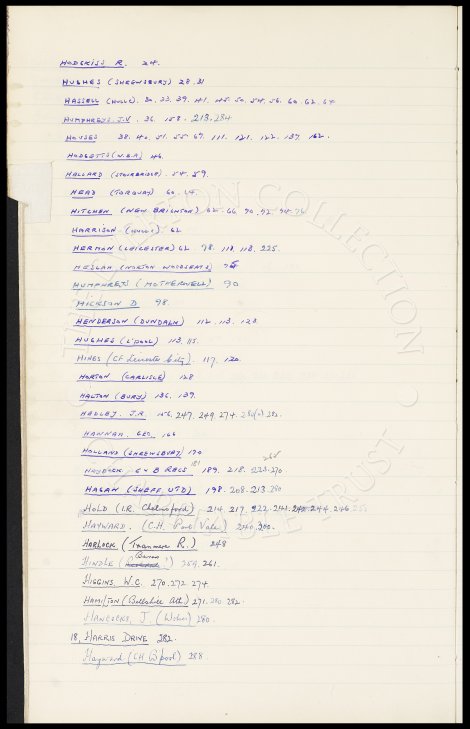 HODGKISS R. 24.
HUGHES (SHREWSBURY) 28. 31
HASSELL (HULL). 30. 33. 39. 41. 45. 50. 54. 56. 60. 62. 64
HUMPHREYS. J.V. 36. 158. 213. 284
HOUSES 38. 40. 51. 55. 67. 111. 121. 122. 137. 162.
HODGETTS (W.B.A) 46.
HALLARD (STOURBRIDGE). 54. 59.
HEAD (TORQUAY) 60. 64.
HITCHEN (NEW BRIGHTON) 62. 66. 70. 72. 74. 76
HARRISON (HULL) 62
HERMON (LEICESTER) 62. 78. 118. 225.
(NORTON WOODSEATS)
HUMPHREYS (MOTHERWELL) 90
HICKSON D 98.
HENDERSON (DUNDALK) 112. 113. 123.
HUGHES (L'POOL) 113. 115.
HINES (Cf Leicester City). 117. 120.
HORTON (CARLISLE) 128
HALTON (BURY) 136. 139.
HEDLEY. J.R. 156. 247. 249. 274. 282.
HANNAH. GEO. 166
HOLLAND (SHREWSBURY) 170
HAYDOCK. G & B RACS 181 189. 218. 223. 270
HAGAN (SHEFF. UTD) 198. 208. 213. 280
HOLD (I.R. Chelmsford) 214. 217. 222. 241. 244. 246.
HAYWARD. (C.H. Port Vale) 240. 200.
HARLOCK (Tranmere R.) 248
HINDLE (Barrow) 259. 261.
HIGGINS. W.C. 270. 272. 274
HAMILTON (Bellshill Ath) 271. 280. 282.
HANCOCKS, J. (Wolves) 280.
18, HARRIS DRIVE 282.
Hayward (CH B'pool) 288
THE COLLECTION
TRUST